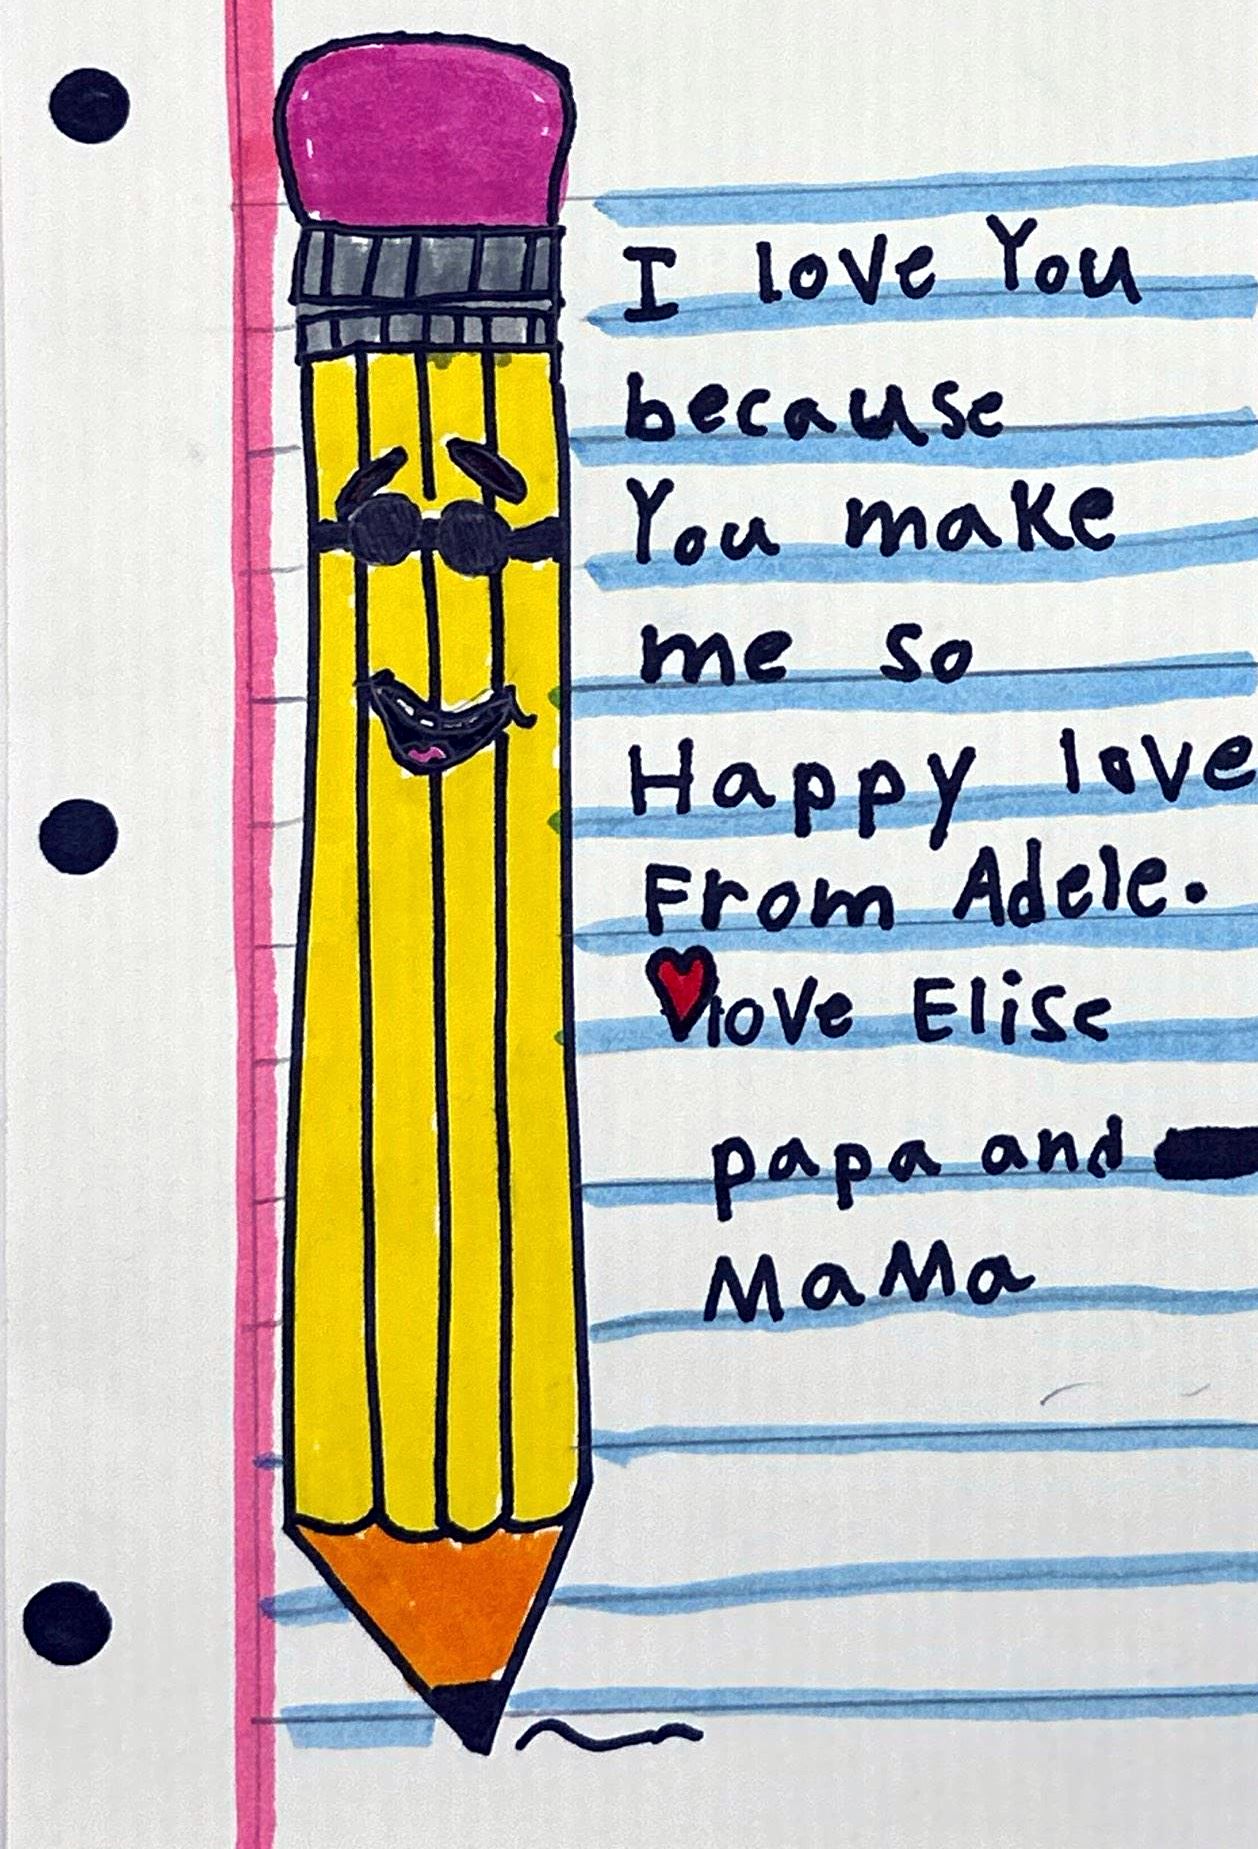 I love You
because
You make
me so
Happy love
From Adele.
love Elise
papa and
MaMa